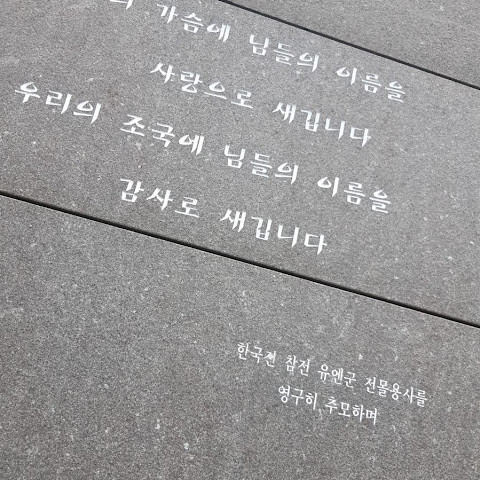 의 가슴에 님들의 이름을
사랑으로 새깁니다
우리의 조국에 님들의 이름을
감사로 새깁니다
한국전 참전 유엔군 전몰용사를
영구히 추모하며